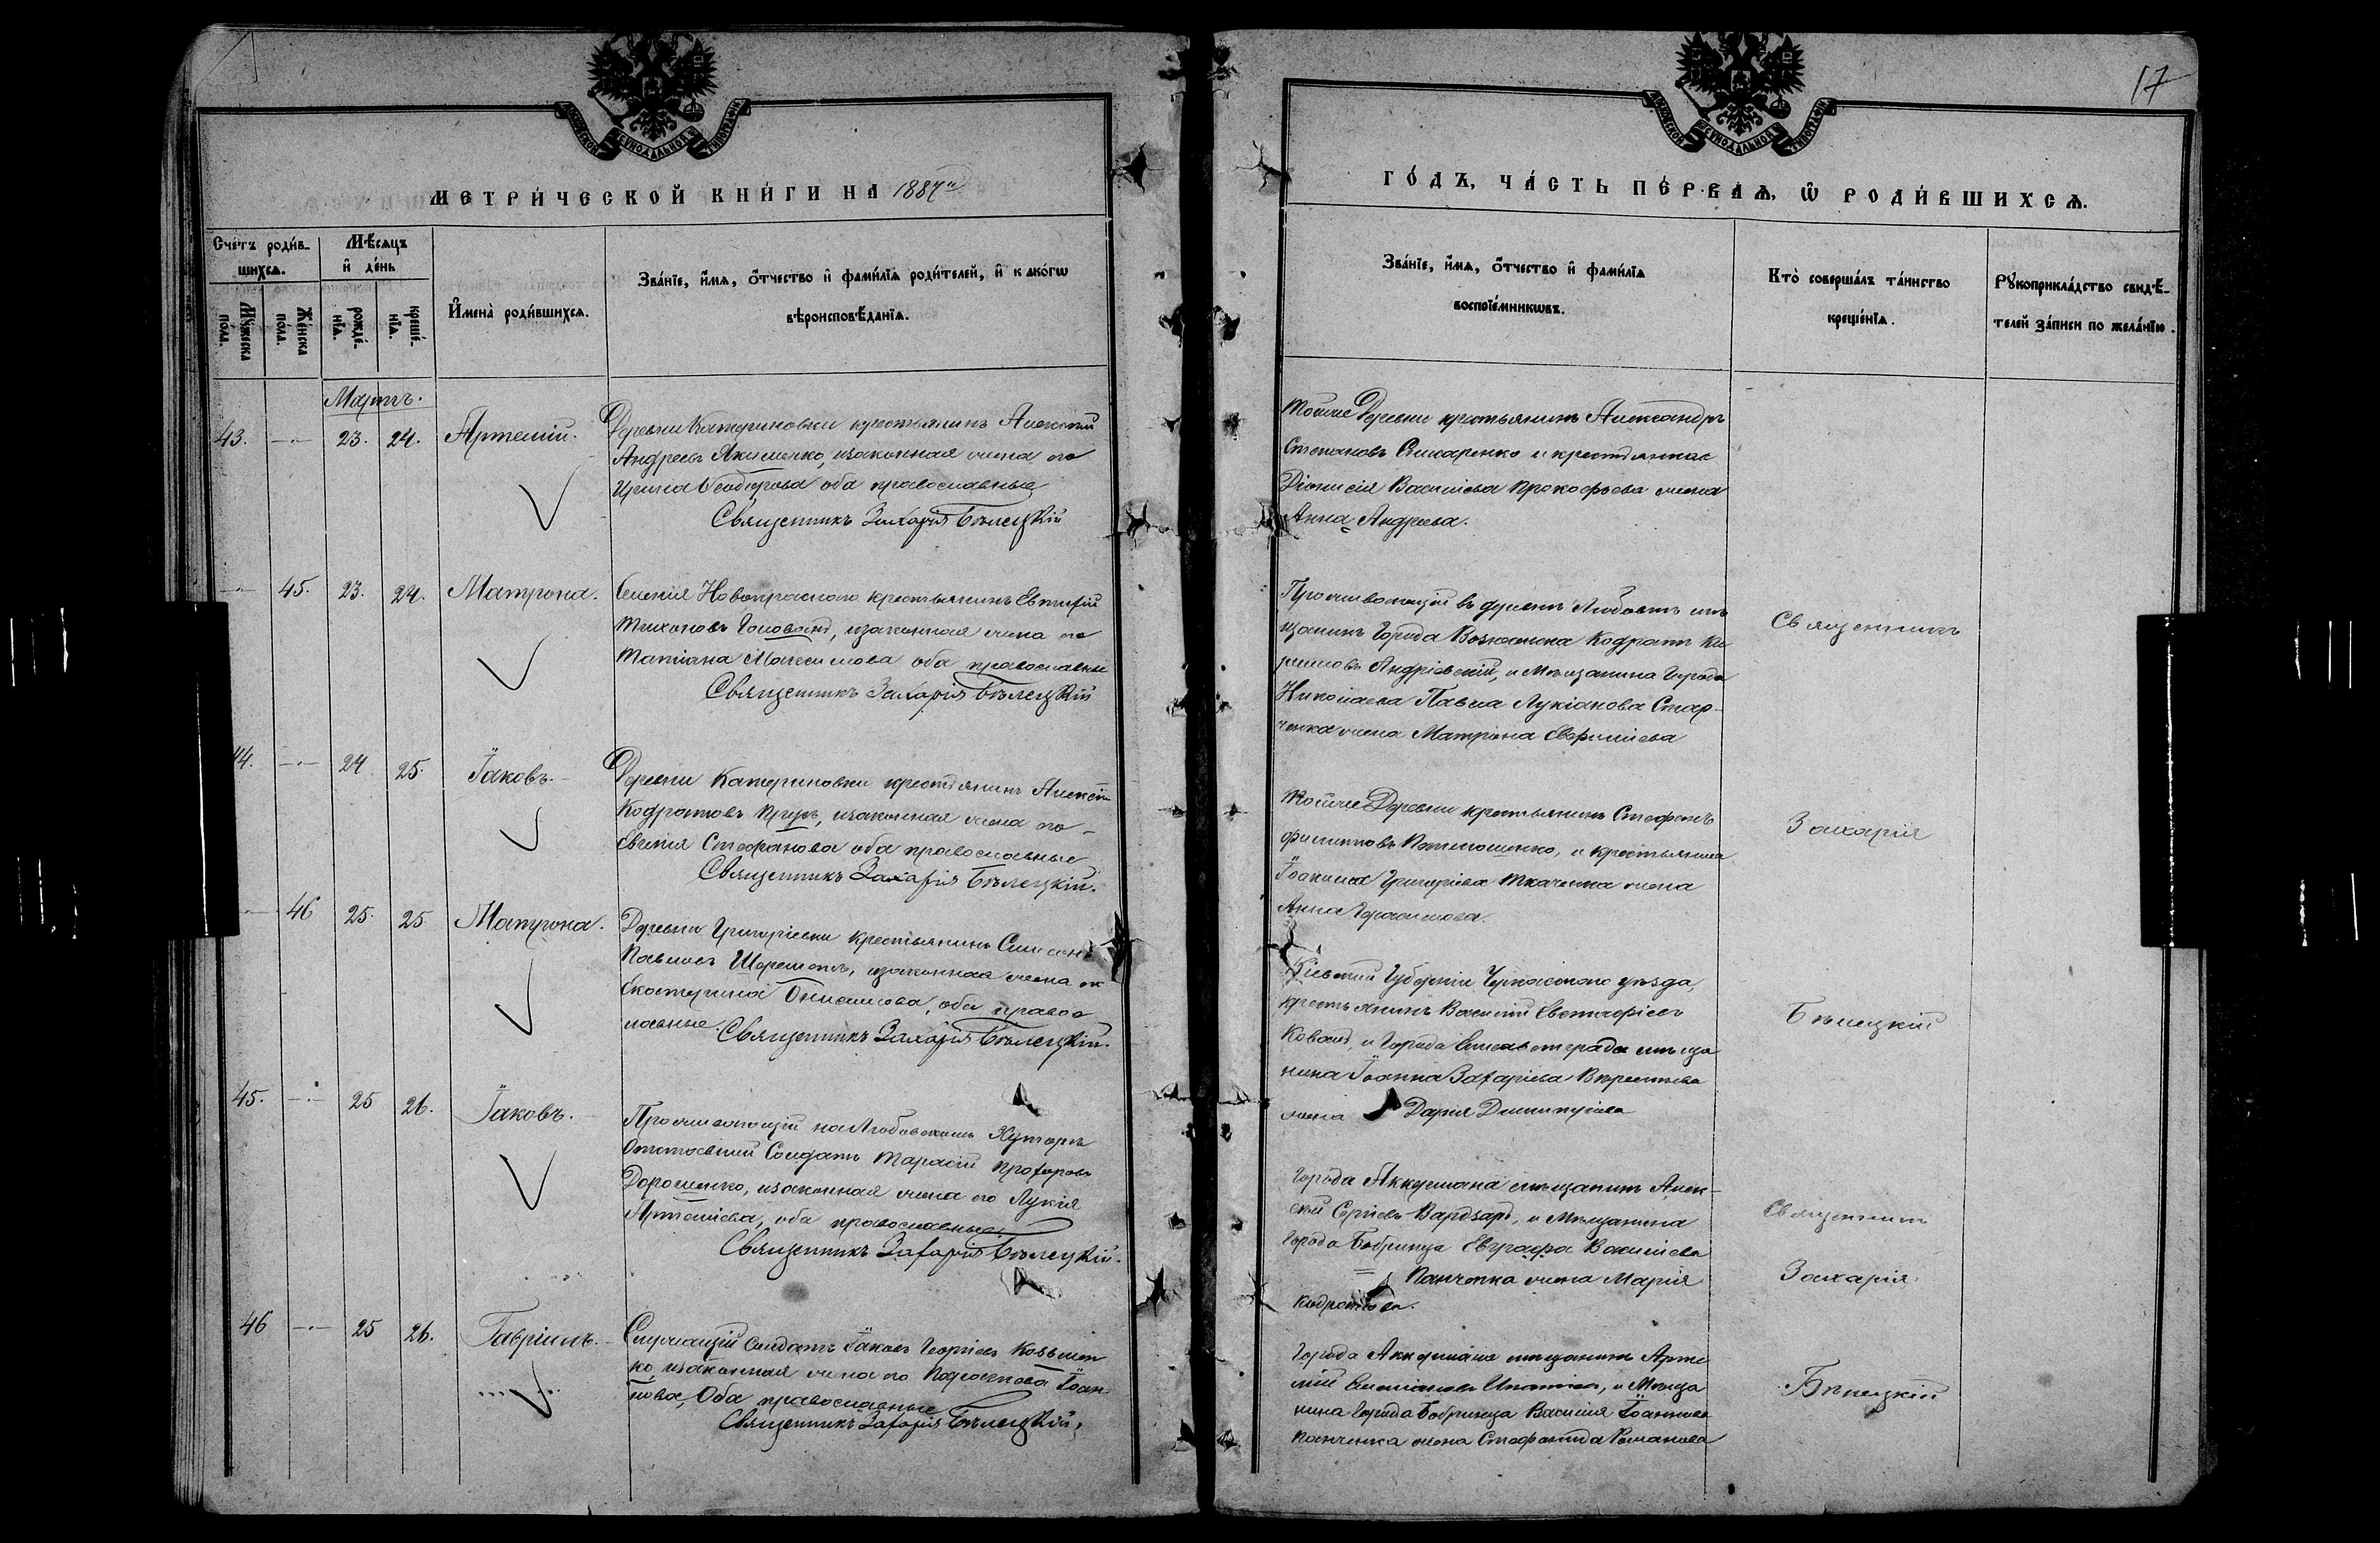 17
МЕТРИ́ЧЕСКОЙ КНИ́ГИ НА 1887й
ГО́ДЪ, ЧА́СТЬ ПЕ́РВАѦ, Ѡ РОДИ́ВШИХСѦ.
Сче́тъ роди́в-
шихсѧ.
Мѣ́сѧцъ
и де́нь
Мꙋ́жеска по́ла.
Же́нска по́ла.
рожде́-нїѧ.
креще́-нїѧ.
И҆мена̀ роди́вшихсѧ.
Зва́нїе, и҆́мѧ, ѻ҆́тчество и҆ фами́лїѧ роди́телей, и҆ какѡ́гѡ
вѣроисповѣ́данїѧ.
Зва́нїе, и҆́мѧ, ѻ҆́тчество и҆ фами́лїѧ
воспрїе́мникѡвъ.
Кто̀ соверша́лъ та́инство
креще́нїѧ.
Рꙋкоприкла́дство свидѣ́-
телей за́писи по жела́нїю.
Мартъ.
43. -- 23. 24. Артемій.
Деревни Катериновки крестьянинъ Алексій
Андреевъ Якименко, и законная жена его
Ирина Ѳеодорова оба православные
Священникъ Захарія Бѣлецкій
Тойже Деревни крестьянинъ Александръ
Степановъ и крестьянина
Діонисія Васильева Прокофьева жена
Анна Андреева.
-- 45. 23. 24. Матрона.
Селенія Новокраснаго крестьянинъ Евтихій
Тихоновъ Головань, и законная жена его
Татіана Максимова оба православные
Священникъ Захарія Бѣлецкій
Проживающій въ мѣ
щанинъ Города Вознесенска Кодратъ Ки
риловъ Андріевскій, и Мѣщанина Города
Николаева Павла Лукіанова Стар-
ченка жена Матрона
Священникъ
44. -- 24 25. Іаковъ.
Деревни Катериновки крестьянинъ Алексій
Кодратовъ и законная жена его
Евгенія Стефанова оба православные
Священникъ Захарія Бѣлецкій.
Тойже Деревни крестьянинъ Стефанъ
Филипповъ и крестьянина
Іоакима Григоріева Ткаченка жена
Анна Герасимова.
Захарія
-- 46 25. 25 Матрона.
Деревни Григоріевки крестьянинъ Симеонъ
Павловъ Шереметъ, и законная жена его
Екатерина Онисимова, оба правос
лавные. Священникъ Захарія Бѣлецкій.
Кіевской Губерніи Черкасскаго уѣзда,
крестьянинъ Василій Евстафіевъ
Коваль, и Города Елисаветграда мѣща
нина Іоанна Захаріева
жена Дарія Димитріева
Бѣлецкій
45. -- 25 26. Іаковъ.
Проживающій на Любовскомъ Хуторѣ
Отставний Солдатъ Тарасій Прохоровъ
Дорошенко, и законная жена его Лукія
Артеміева, оба православные
Священникъ Захарія Бѣлецкій.
Города Аккермана мѣщанинъ Алек-
сій Сергіевъ и Мѣщанина
Города Бобринца Евграфа Василіева
Панченка жена Марія
Кодратова.
Священникъ
Захарія
46 -- 25 26. Гавріилъ.
Служащій Солдатъ Іаковъ Георгіевъ Козьмен
ко, и законная жена его Іоан
нова, Оба православные
Священникъ Захарія Бѣлецкій,
Города Аккермана мѣщанинъ Арте
мій и Мѣща
нина Города Бобринца Василія Іоаннова
Панченка жена Стефанида Романова
Бѣлецкій